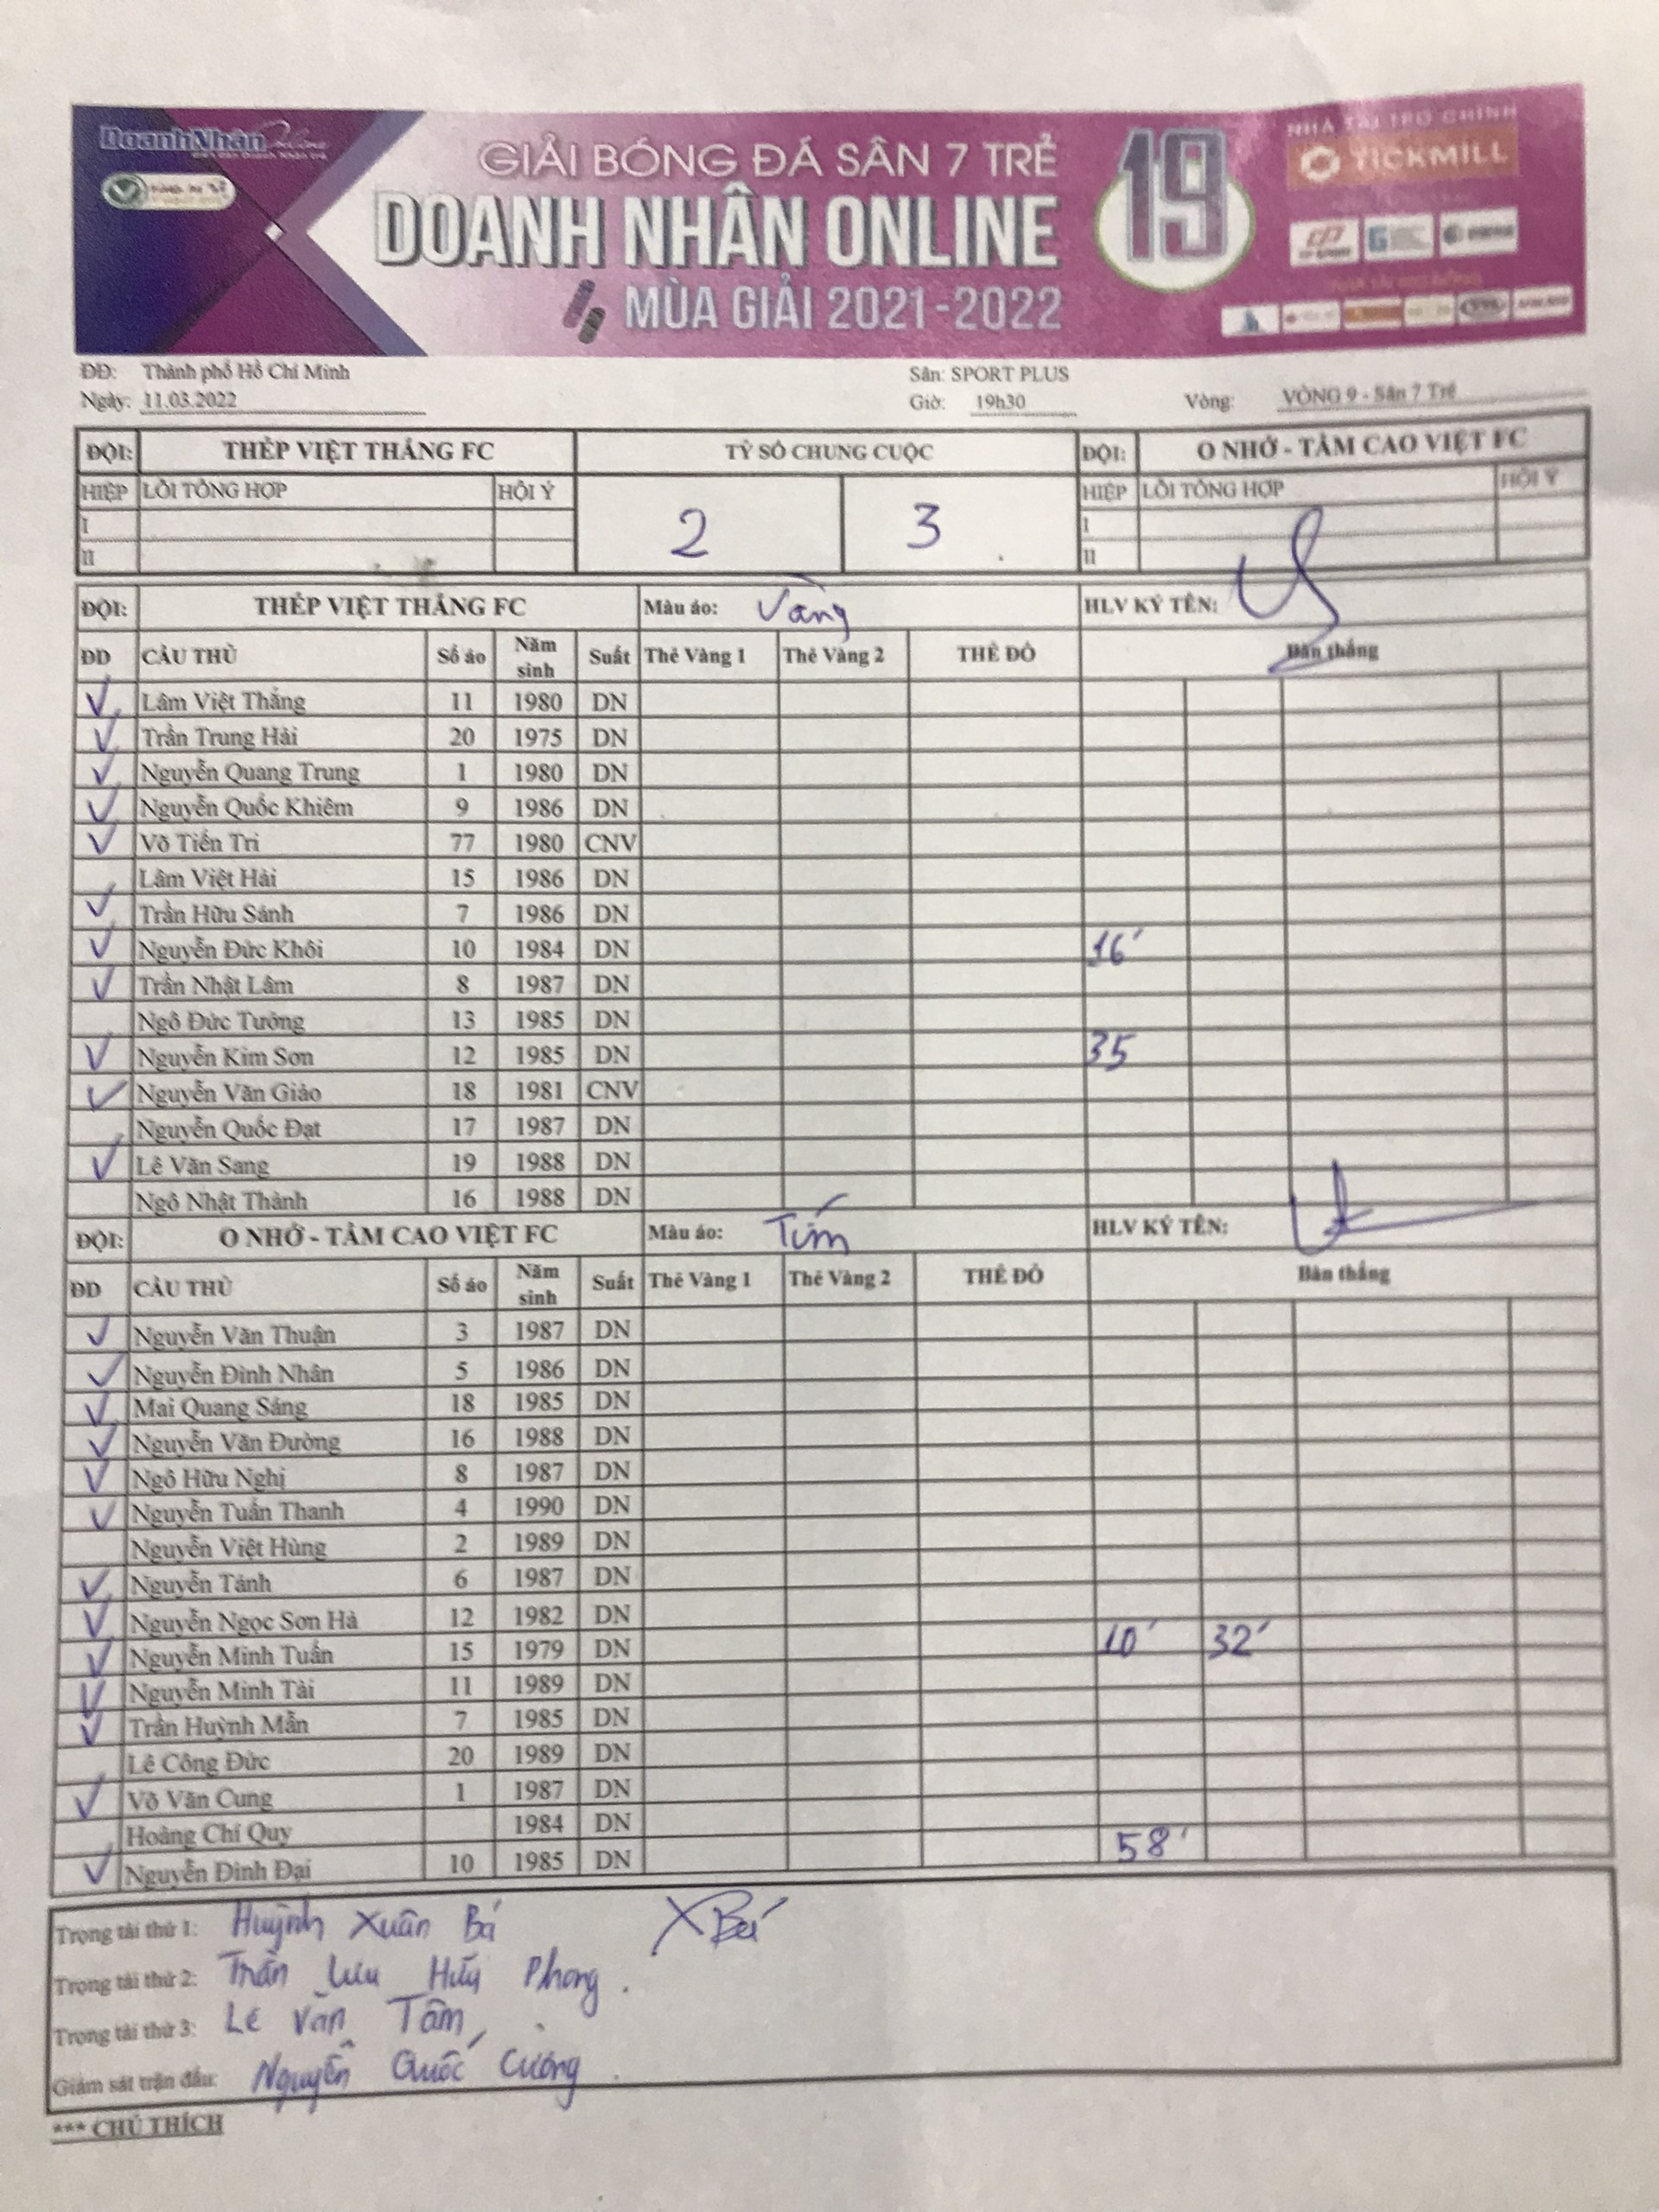 DoanhNhân Online
GIẢI BÓNG ĐÁ SÂN 7 TRẺ
DOANH NHÂN ONLINE
MÙA GIẢI 2021-2022
19
NHÀ TÀI TRỢ CHÍNH
TICKMILL
ĐĐ: Thành phố Hồ Chí Minh Sân: SPORT PLUS
Ngày: 11.03.2022 Giờ: 19h30 Vòng: VÒNG 9 - Sân 7 Trẻ
ĐỘI: THÉP VIỆT THẮNG FC TỶ SỐ CHUNG CUỘC ĐỘI: O NHỚ - TÂM CAO VIỆT FC
HIỆP LỖI TỔNG HỢP HỘI Ý 2 3 HIỆP LỖI TỔNG HỢP HỘI Ý
I I
II II
ĐỘI: THÉP VIỆT THẮNG FC Màu áo: Vàng HLV KÝ TÊN:
ĐD CẦU THỦ Số áo Năm sinh Suất Thẻ Vàng 1 Thẻ Vàng 2 THẺ ĐỎ Bàn thắng
Lâm Việt Thắng 11 1980 DN
Trần Trung Hải 20 1975 DN
Nguyễn Quang Trung 1 1980 DN
Nguyễn Quốc Khiêm 9 1986 DN
Võ Tiến Trí 77 1980 CNV
Lâm Việt Hải 15 1986 DN
Trần Hữu Sánh 7 1986 DN
Nguyễn Đức Khôi 10 1984 DN 16'
Trần Nhật Lâm 8 1987 DN
Ngô Đức Tưởng 13 1985 DN
Nguyễn Kim Sơn 12 1985 DN 35
Nguyễn Văn Giáo 18 1981 CNV
Nguyễn Quốc Đạt 17 1987 DN
Lê Văn Sang 19 1988 DN
Ngô Nhật Thành 16 1988 DN
ĐỘI: O NHỚ - TÂM CAO VIỆT FC Màu áo: Tím HLV KÝ TÊN:
ĐD CẦU THỦ Số áo Năm sinh Suất Thẻ Vàng 1 Thẻ Vàng 2 THẺ ĐỎ Bàn thắng
Nguyễn Văn Thuận 3 1987 DN
Nguyễn Đình Nhân 5 1986 DN
Mai Quang Sáng 18 1985 DN
Nguyễn Văn Đường 16 1988 DN
Ngô Hữu Nghị 8 1987 DN
Nguyễn Tuấn Thanh 4 1990 DN
Nguyễn Việt Hùng 2 1989 DN
Nguyễn Tánh 6 1987 DN
Nguyễn Ngọc Sơn Hà 12 1982 DN
Nguyễn Minh Tuấn 15 1979 DN 10' 32'
Nguyễn Minh Tài 11 1989 DN
Trần Huỳnh Mẫn 7 1985 DN
Lê Công Đức 20 1989 DN
Võ Văn Cung 1 1987 DN
Hoàng Chí Quy 1984 DN
Nguyễn Đình Đại 10 1985 DN 58'
Trọng tài thứ 1: Huỳnh Xuân Bá XBá
Trọng tài thứ 2: Trần Lưu Huy Phong.
Trọng tài thứ 3: Lê Văn Tâm
Giám sát trận đấu: Nguyễn Quốc Cường.
*** CHÚ THÍCH